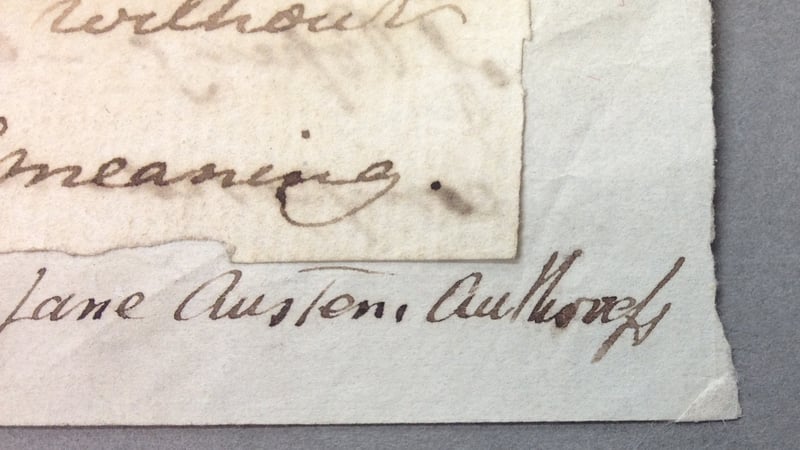 without
meaning.
Jane Austen. Authoreſs